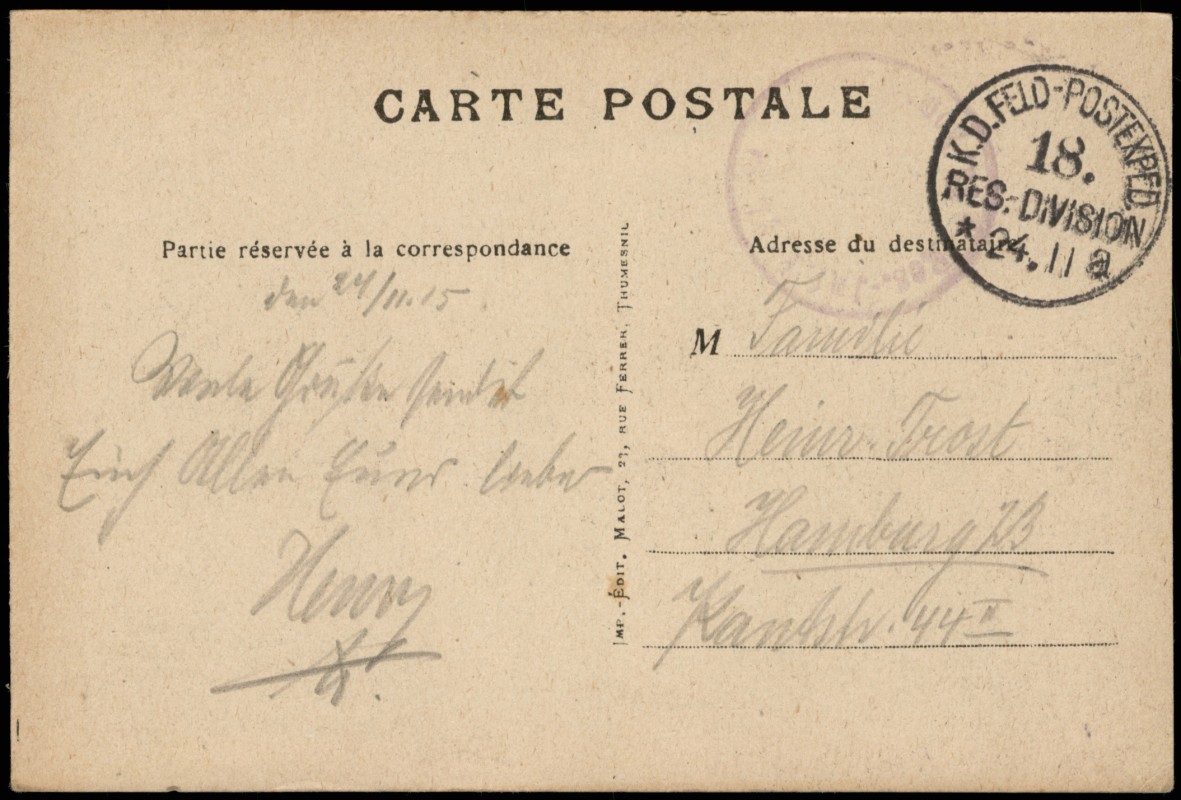 CARTE POSTALE
K.D. FELD-POSTEXPED.
18.
RES.-DIVISION
* 24.11 a
Partie réservée à la correspondance
den 24/11.15
Viele Grüße sendet
Euch Allen Euer lieber
Henry
IMP.-ÉDIT. MALOT, 23, RUE FERRER, THUMESNIL
Adresse du destinataire
M Familie
Heinr. Trost
Hamburg 23
Kantstr. 44 II